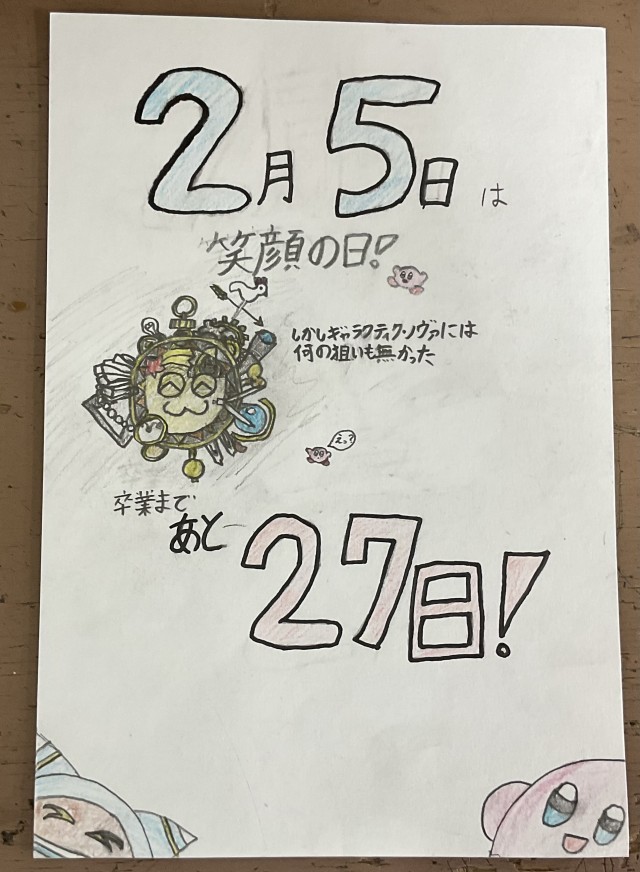 2月5日は
笑顔の日!
しかしギャラクティック・ノヴァには
何の狙いも無かった
えっ?
卒業まで
あと
27日!